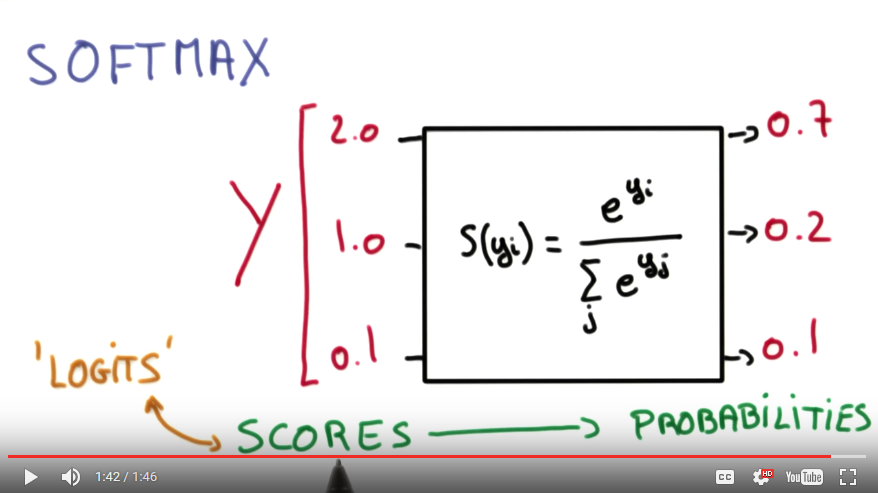 SOFTMAX
Y
2.0
1.0
0.1
S(yi) = e^yi / Σj e^yj
0.7
0.2
0.1
'LOGITS'
SCORES → PROBABILITIES
1:42 / 1:46
CC
HD
YouTube